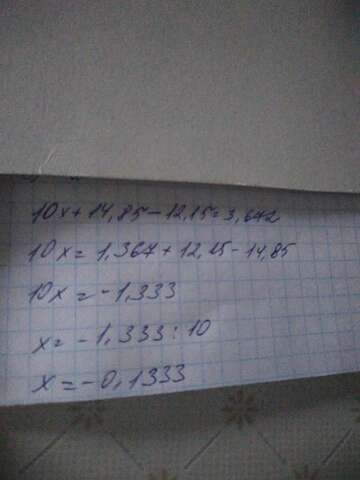 10x+14,85-12,15=3,672
10x=1,367+12,15-14,85
10x=-1,333
x=-1,333:10
x=-0,1333